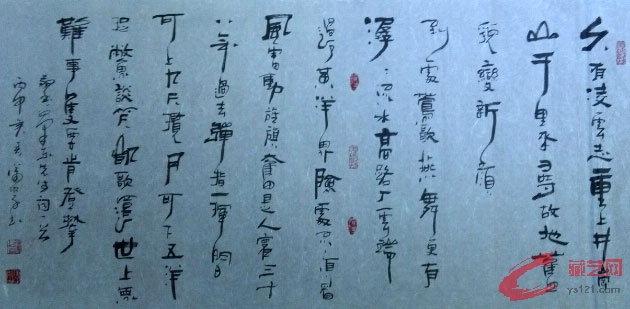 久有凌雲志重上井岡
山千里來尋故地舊
貌變新顏
到處鶯歌燕舞更有
潺潺流水高路入雲端
過了黃洋界險處不須看
風雷動旌旗奮是人寰三十
八年過去彈指一揮間
可上九天攬月可下五洋
捉鱉談笑凱歌還世上無
難事隻要肯登攀
先生詞一首
丙申
藏艺网
ys121.com